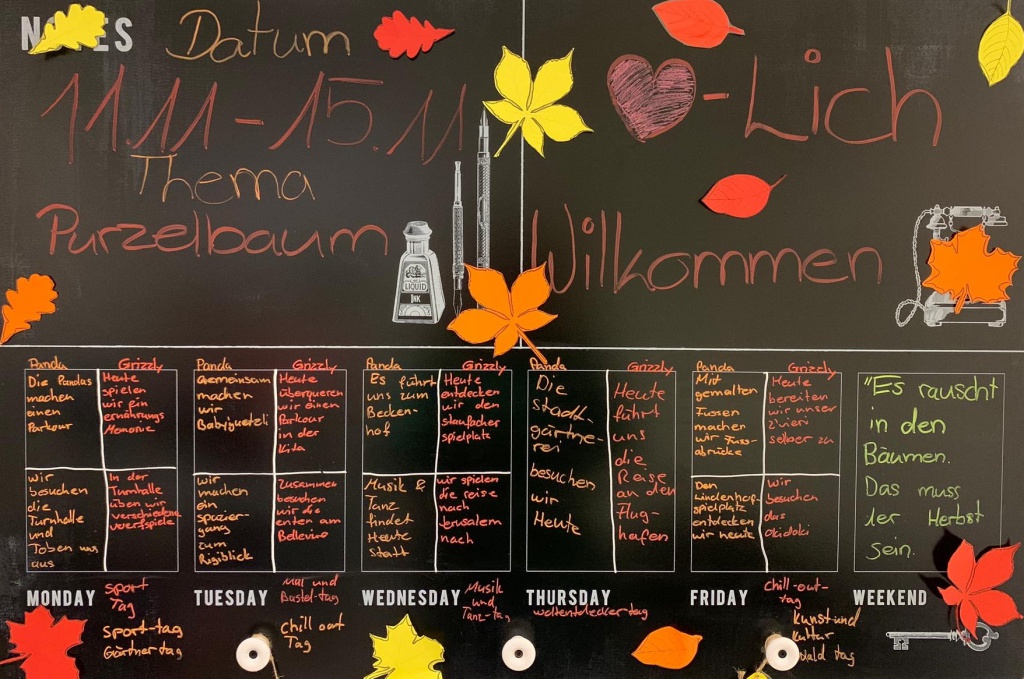 Datum
11.11-15.11
Thema
Purzelbaum
-Lich
Willkommen
LIQUID
INK
Panda
Die Pandas
machen
einen
Parkour
Grizzly
Heute
spielen
wir ein
ernährungs
Memorie
wir
besuchen
die
Turnhalle
und
Toben uns
aus
In der
Turnhalle
üben wir
verschiedene
wurfspiele
MONDAY
Sport
Tag
Sport-tag
Gärtnertag
Panda
Gemeinsam
machen
wir
Babyguetzli
Grizzly
Heute
überqueren
wir einen
Parkour
in der
Kita
wir
machen
ein
spazier-
gang
zum
Rigiblick
Zusammen
besuchen
wir die
enten am
Bellevino
TUESDAY
Mal und
Bastel-tag
Chill out
Tag
Panda
Es führt
uns zum
Becken-
hof
Grizzly
Heute
entdecken
wir den
staufacher
spielplatz
Musik &
Tanz
findet
Heute
statt
wir spielen
die reise
nach
Jerusalem
nach
WEDNESDAY
Musik
und
Tanz-tag
Panda
Die
stadt-
gärtne-
rei
besuchen
wir
Heute
Grizzly
Heute
führt
uns
die
Reise
an den
Flug-
hafen
THURSDAY
weltentdeckertag
Panda
Mit
gemalten
Fussen
macher
wir Fuss-
abrücke
Grizzly
Heute
bereiten
wir unser
z'vieri
selber zu
Den
Lindenhof-
spielplatz
entdecken
wir heute
Wir
besuchen
das
okidoki
FRIDAY
Chill-out-
tag
Kunst und
Kultur
wald tag
"Es rauscht
in den
Bäumen.
Das muss
der Herbst
sein.
WEEKEND